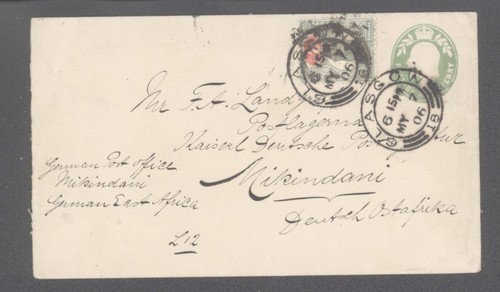 GLASGOW
6 15 PM
MY 7
06
GLASGOW
6 15 PM
MY 7
06
Mr F. A. Landy
Postlagernd
Kaiserl Deutsche
Mikindani
Deutsch Ostafrika
German Post office
Mikindani
German East Africa
L12